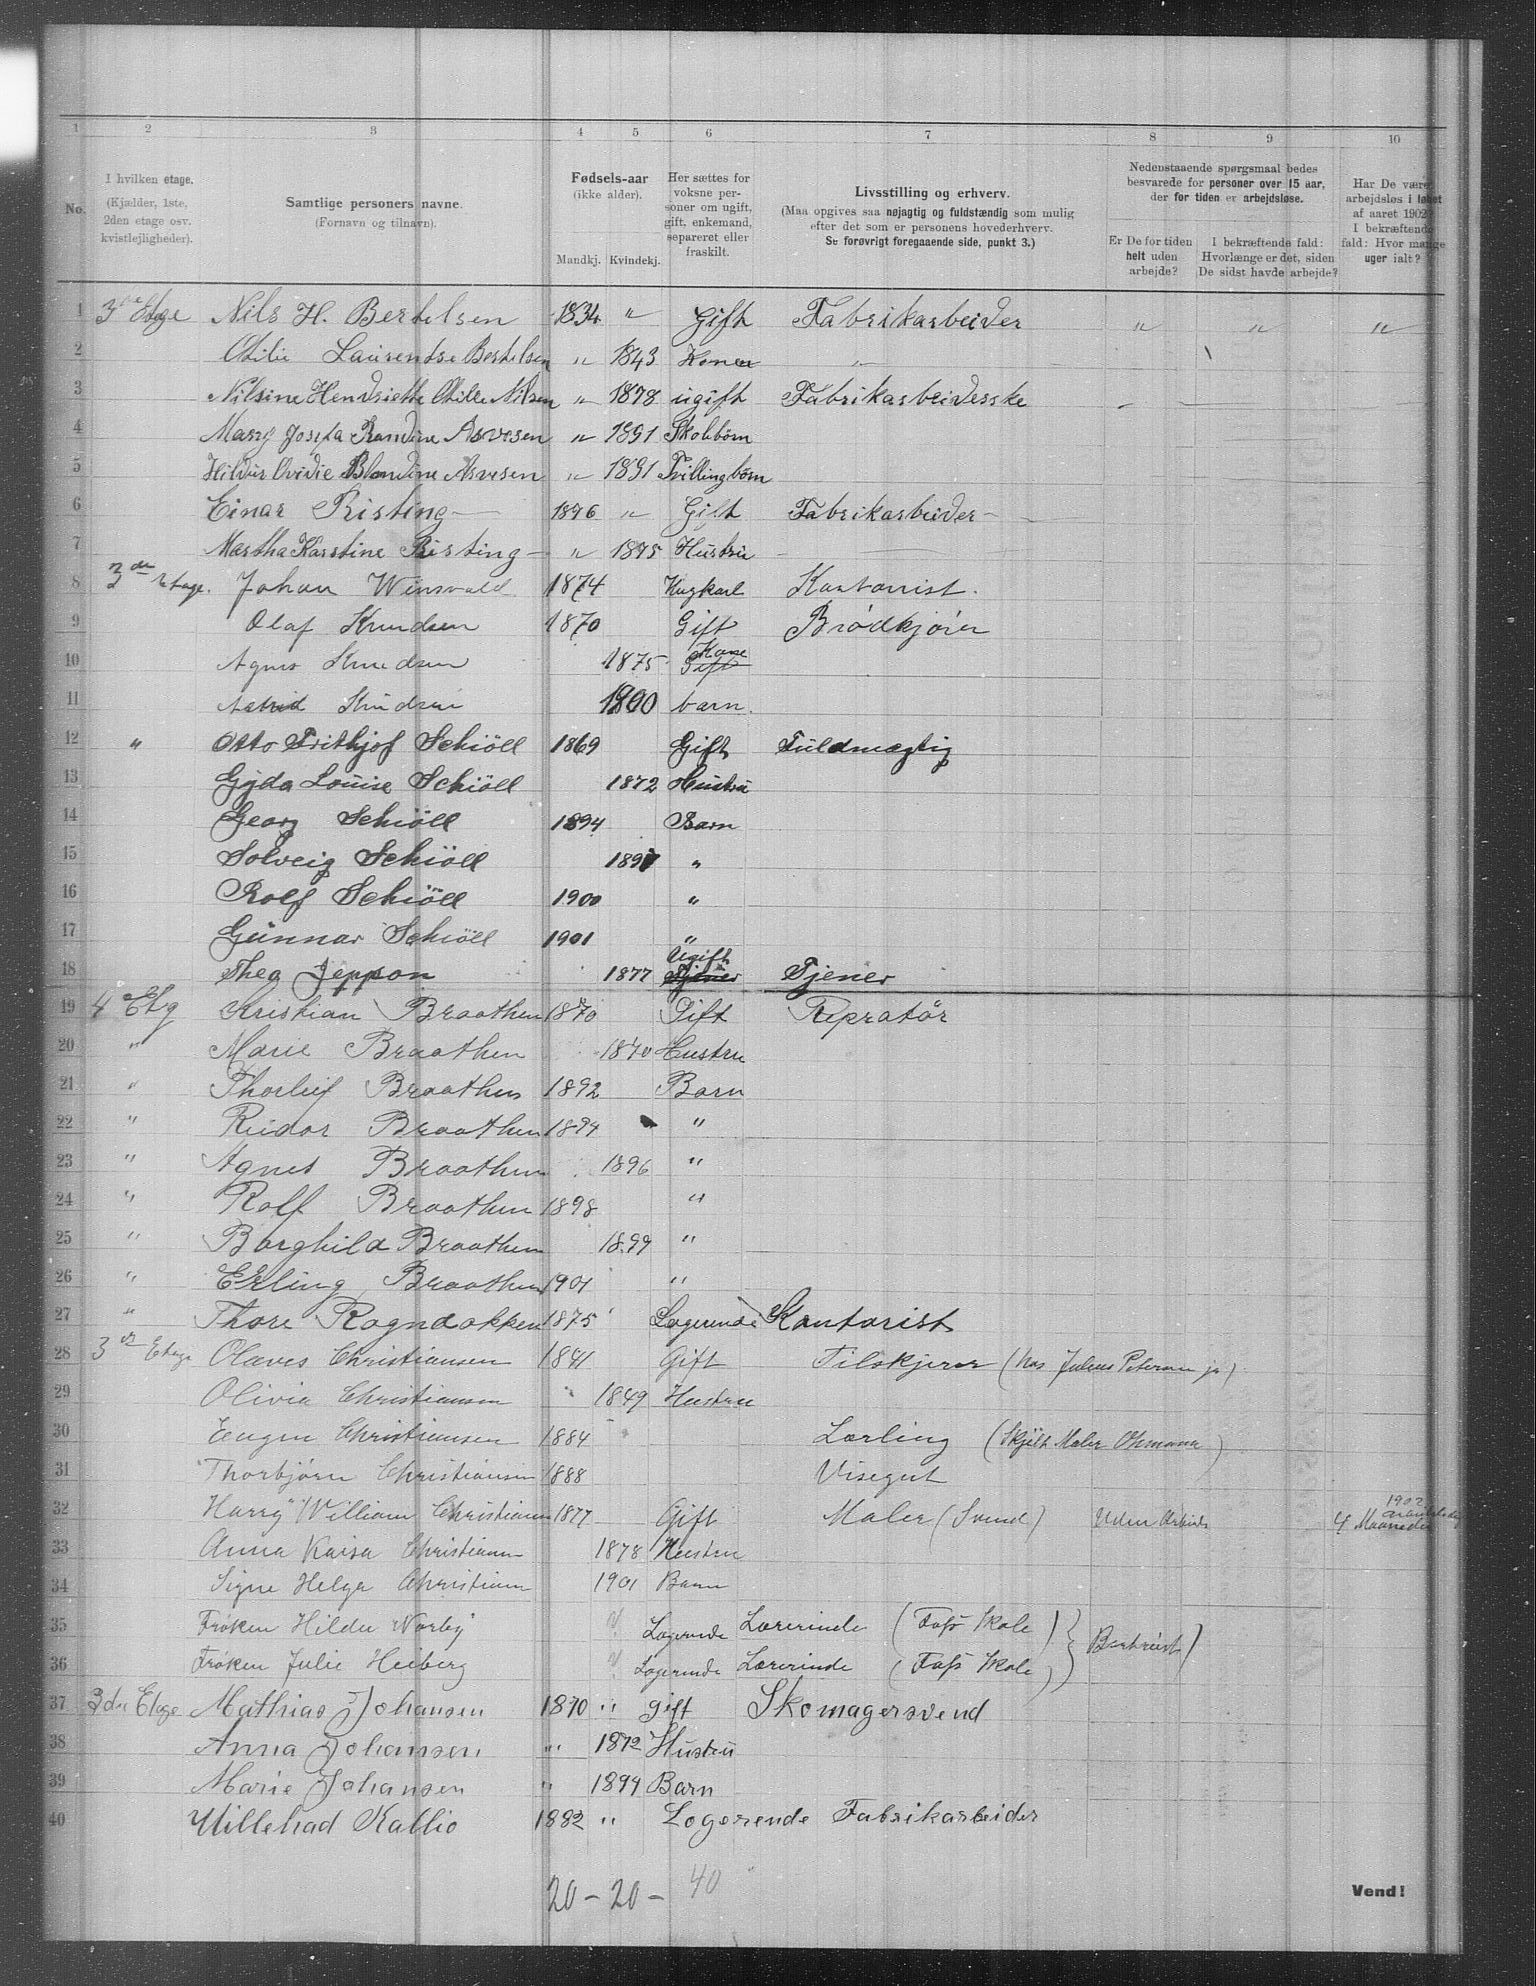 1 2 3 4 5 6 7 8 9 10
No. I hvilken etage. (Kjælder, 1ste, 2den etage osv. kvistlejligheder). Samtlige personers navne. (Fornavn og tilnavn). Fødsels-aar (ikke alder). Mandkj. Kvindekj. Her sættes for voksne personer om ugift, gift, enkemand, separeret eller fraskilt. Livsstilling og erhverv. (Maa opgives saa nøjagtig og fuldstændig som mulig efter det som er personens hovederhverv. Se forøvrigt foregaaende side, punkt 3.) Nedenstaaende spørgsmaal bedes besvarede for personer over 15 aar, der for tiden er arbejdsløse. Er De for tiden helt uden arbejde? I bekræftende fald: Hvorlænge er det, siden De sidst havde arbejde? Har De været arbejdsløs i løbet af aaret 1902? I bekræftende fald: Hvor mange uger ialt?
1 3die Etage Nils H. Bertelsen 1834 " Gift Fabrikarbeider " " "
2 Otilie Laurentse Bertelsen " 1843 Kone "
3 Nilsine Hendriette Otille Nilsen " 1878 ugift Fabrikarbeiderske
4 Marry Josefa Randine Asvesen " 1891 Skolebørn
5 Hildur Ovidie Blondine Asvesen " 1891 Tvillingbørn
6 Einar Risting 1876 " Gift Fabrikarbeider
7 Martha Karstine Risting " 1875 Hustru
8 3de Etage. Johan Winsvold 1874 Ungkarl Kontorist.
9 Olaf Knudsen 1870 Gift Brødkjører
10 Agnes Knudsen 1875 Gift Kone
11 Astrid Knudsen 1900 barn.
12 " Otto Frithjof Schiöll 1869 Gift Fuldmægtig
13 Gyda Louise Schiöll 1872 Hustru
14 Georg Schiöll 1894 Barn
15 Solveig Schiöll 1897 "
16 Rolf Schiöll 1900 "
17 Gunnar Schiöll 1901 "
18 Thea Jeppson 1877 Tjener Ugift Tjener
19 4 Etg Kristian Braathen 1870 Gift Repratør
20 " Marie Braathen 1870 Hustru
21 " Thorleif Braathen 1892 Barn
22 " Reidar Braathen 1894 "
23 " Agnes Braathen 1896 "
24 " Rolf Braathen 1898 "
25 " Borghild Braathen 1899 "
26 " Erling Braathen 1901 "
27 " Thore Rogndokken 1875 Logerende Kontorist
28 3de Etage Olaves Christiansen 1841 Gift Filskjærer (hos Julius Petersen jr)
29 Olivia Christiansen 1849 Hustru
30 Eugen Christiansen 1884 Lærling (Skjilt Maler Ohmann)
31 Thorbjørn Christiansen 1888 Visegut
32 Harry William Christiansen 1877 Gift Maler (Svend) Uden Arbeide 4 Maaneder 1902
33 Anna Kaisa Christiansen 1878 Hustru
34 Signe Helga Christiansen 1901 Barn
35 Frøken Hilda Norby Logerende Lærerinde (Fa's Skole)
36 Frøken Julie Heiberg Logerende Lærerinde (Fa's Skole) Bortreist)
37 3die Etage Mathias Johansen 1870 " gift Skomagersvend
38 Anna Johansen " 1872 Hustru
39 Marie Johansen " 1894 Barn
40 Willehad Kallio 1882 " Logerende Fabrikarbeider
20 - 20 - 40
Vend!